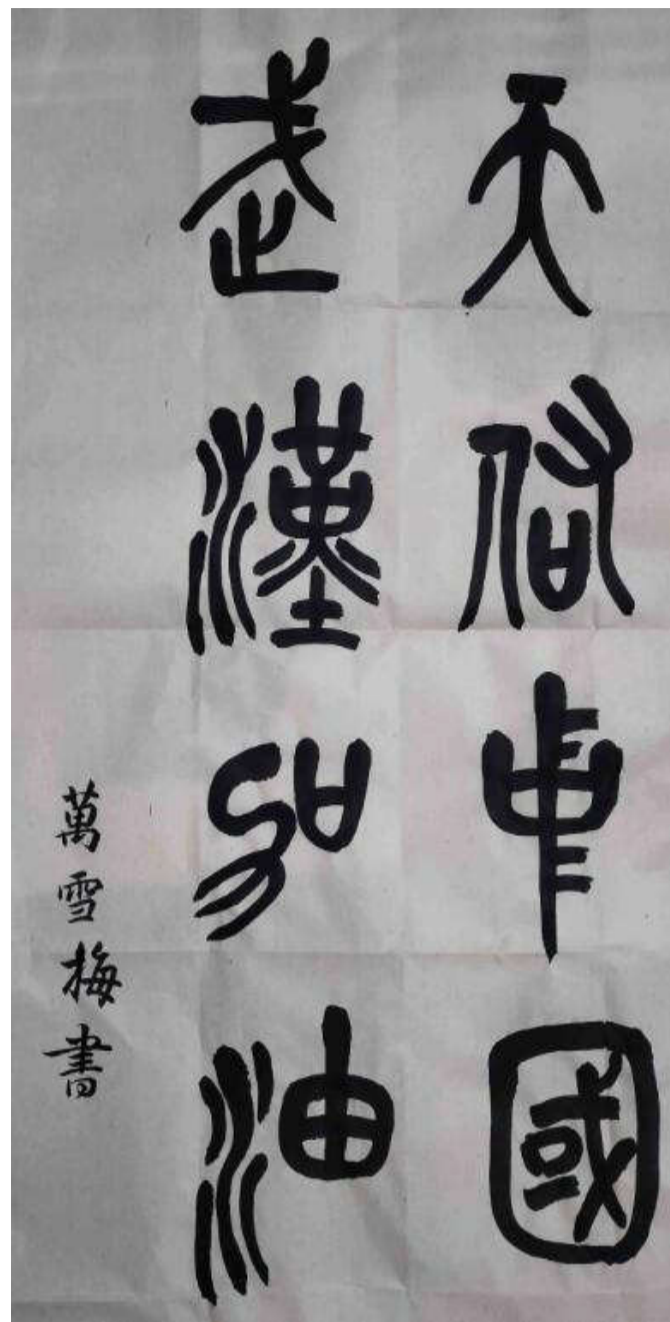 天佑中國
武漢加油
萬雪梅書